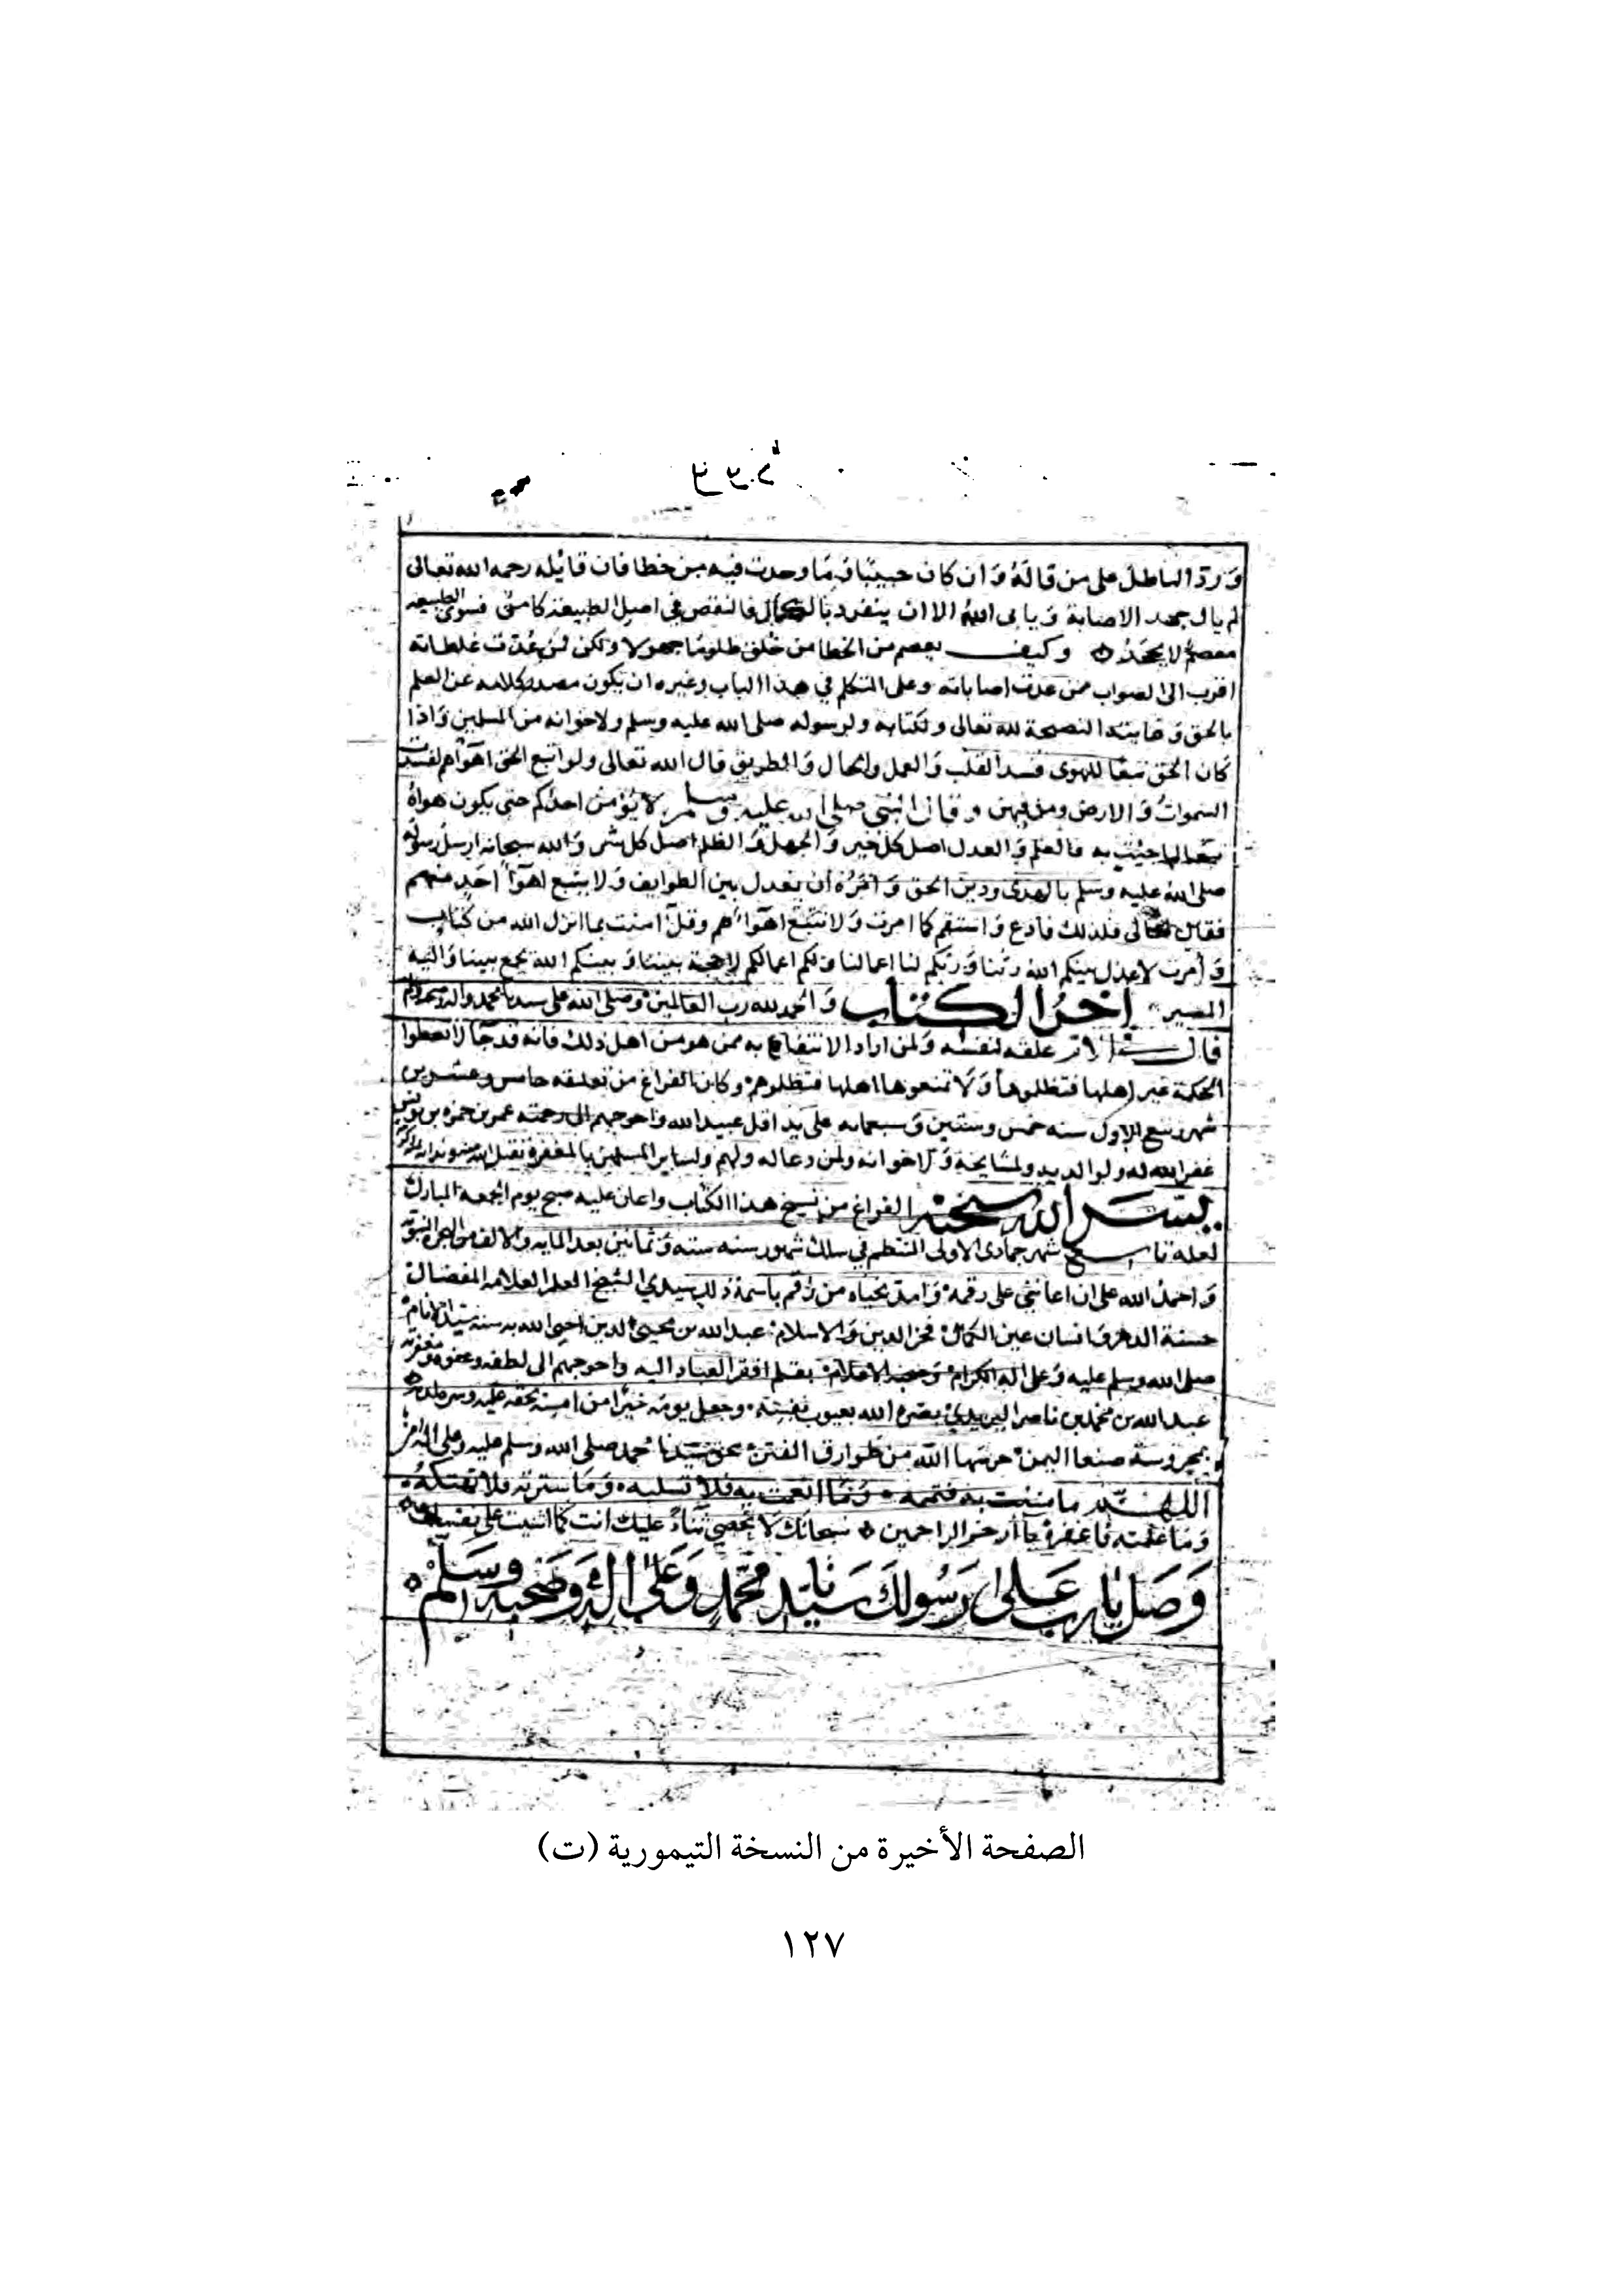 ورد الباطل على من قاله وان كان حبيبا وما وجدت فيه من خطا فان قائله رحمه الله تعالى
لم يال جهد الاصابة ويابى الله الا ان ينفرد بالكمال فالنقص في اصل الطبيعة كامن فسوى الطبيعه
لا يجحد وكيف يعصم من الخطا من خلق ظلوما جهولا ولكن من عدت غلطاته
اقرب الى الصواب ممن عدت اصاباته وعلى المتكلم في هذا الباب وغيره ان يكون مصدر كلامه عن العلم
بالحق وغايته النصيحة لله تعالى ولكتابه ولرسوله صلى الله عليه وسلم ولاخوانه من المسلمين واذا
كان الحق تبعا للهوى فسد القلب والعمل والحال والطريق قال الله تعالى ولو اتبع الحق اهواهم لفسدت
السموات والارض ومن فيهن وقال النبي صلى الله عليه وسلم لا يؤمن احدكم حتى يكون هواه
تبعا لما جئت به فالعلم والعدل اصل كل خير والجهل والظلم اصل كل شر والله سبحانه ارسل رسوله
صلى الله عليه وسلم بالهدى ودين الحق وامره ان يعدل بين الطوايف ولا يتبع اهوآ احد منهم
فقال تعالى فلذلك فادع واستقم كما امرت ولا تتبع اهوآءهم وقل آمنت بما انزل الله من كتاب
وأمرت لاعدل بينكم الله ربنا وربكم لنا اعمالنا ولكم اعمالكم لا حجة بيننا وبينكم الله يجمع بيننا واليه
المصير اخر الكتاب والحمد لله رب العالمين وصلى الله على سيدنا محمد واله وصحبه وسلم
قال علقه لنفسه ولمن اراد الانتفاع به ممن هو من اهل ذلك فانه قد جآ لا تعطوا
الحكمة غير اهلها فتظلموها ولا تمنعوها اهلها فتظلموهم وكان الفراغ من تعليقه خامس وعشرين
شهر ربيع الاول سنه خمس وستين وسبعمايه على يد اقل عبيد الله واحوجهم الى رحمته عمر بن حمزه بن يونس
غفر الله له ولوالديه ولمشايخه ولاخوانه ولمن دعا له ولهم ولساير المسلمين بالمغفرة تقبل الله
يسر الله بنسخه الفراغ من نسخ هذا الكتاب واعان عليه صبح يوم الجمعه المبارك
لعله تاسع شهر جمادى الاولى المنتظم في سلك شهور سنه سته وثمانين بعد المايه والالف من الهجره النبويه
واحمد الله على ان اعانني على رقمه وامتد بحياه من رقم باسمه ذلك سيدي الشيخ العلم العلامه المفضال
حسنة الدهر وانسان عين الكمال فخر الدين والاسلام عبد الله بن محيي الدين احيى الله به سنة سيد الانام
صلى الله وسلم عليه وعلى اله الكرام وصحبه الاعلام بقلم افقر العباد اليه واحوجهم الى لطفه وعفوه ومغفرته
عبد الله بن محمد بن ناصر اليريدي بصره الله بعيوب نفسه وجعل يومه خيرا من امسه بحقه عليه
بمحروسة صنعا اليمن حرسها الله من طوارق الفتن بحق سيدنا محمد صلى الله وسلم عليه وعلى اله
اللهم ما مننت به فتممه وما انعمت به فلا تسلبه وما سترته فلا تهتكه
وما علمته فاغفره يا أرحم الراحمين سبحانك لا نحصي ثناءً عليك انت كما اثنيت على نفسك
وصل يا رب على رسولك سيدنا محمد وعلى اله وصحبه وسلم
الصفحة الأخيرة من النسخة التيمورية (ت)
١٢٧